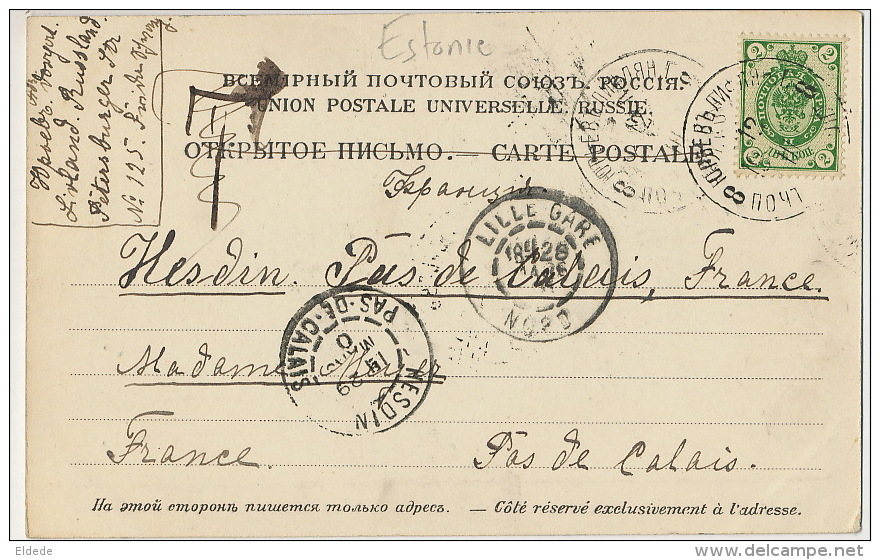 Estonie
Юрьевъ. Dorpat.
Livland. Russland
Petersburger Str
№ 125.
ВСЕМІРНЫЙ ПОЧТОВЫЙ СОЮЗЪ. РОССІЯ.
UNION POSTALE UNIVERSELLE. RUSSIE.
ОТКРЫТОЕ ПИСЬМО. — CARTE POSTALE
T
2 2
2 2
Франція
LILLE GARE
26
NORD
Hesdin. Pas de Calais, France.
HESDIN
PAS-DE-CALAIS
Madame Meyer
France. Pas de Calais.
На этой сторонѣ пишется только адресъ. — Côté réservé exclusivement à l'adresse.
Eldede
delcampe.net